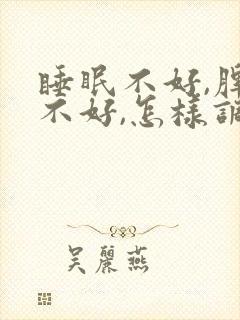 睡眠不好,脾
不好,怎樣調
吴麗燕